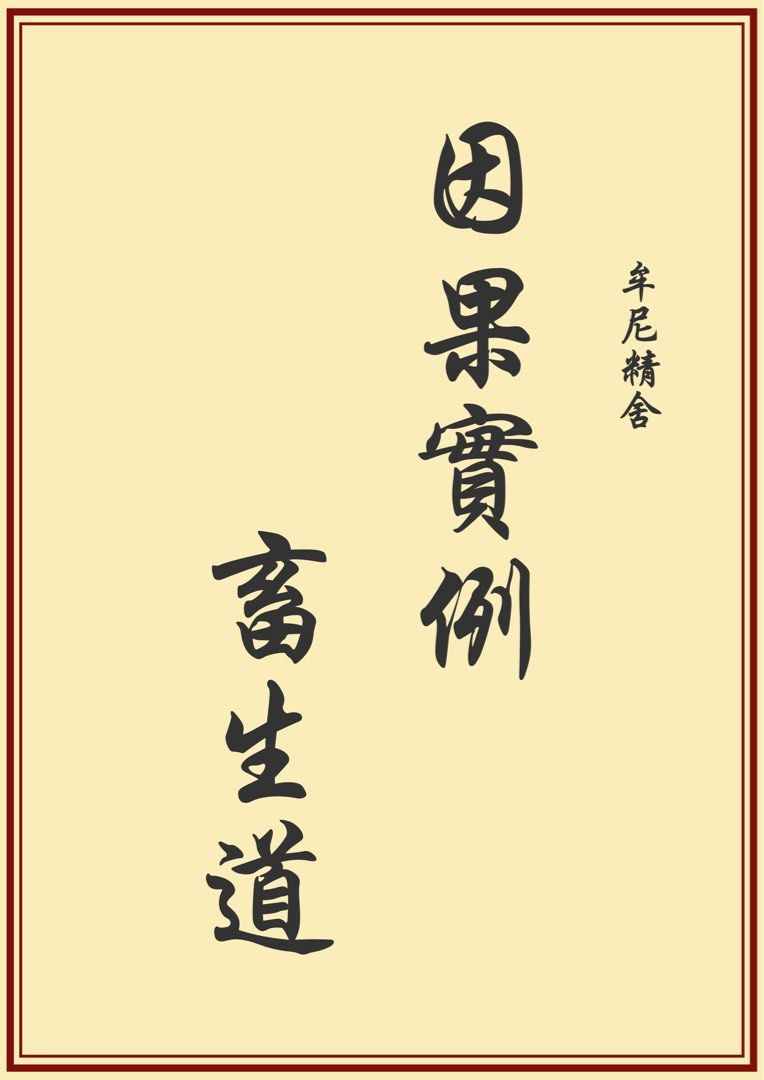 牟尼精舍
因果實例
畜生道